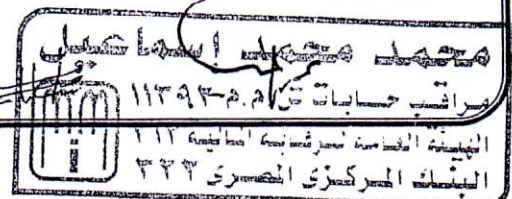 محمد محمد إسماعيل
مراقب حسابات س.م.م ١١٣٩٣
الهيئة العامة للرقابة المالية
البنك المركزى المصرى ٣٢٣